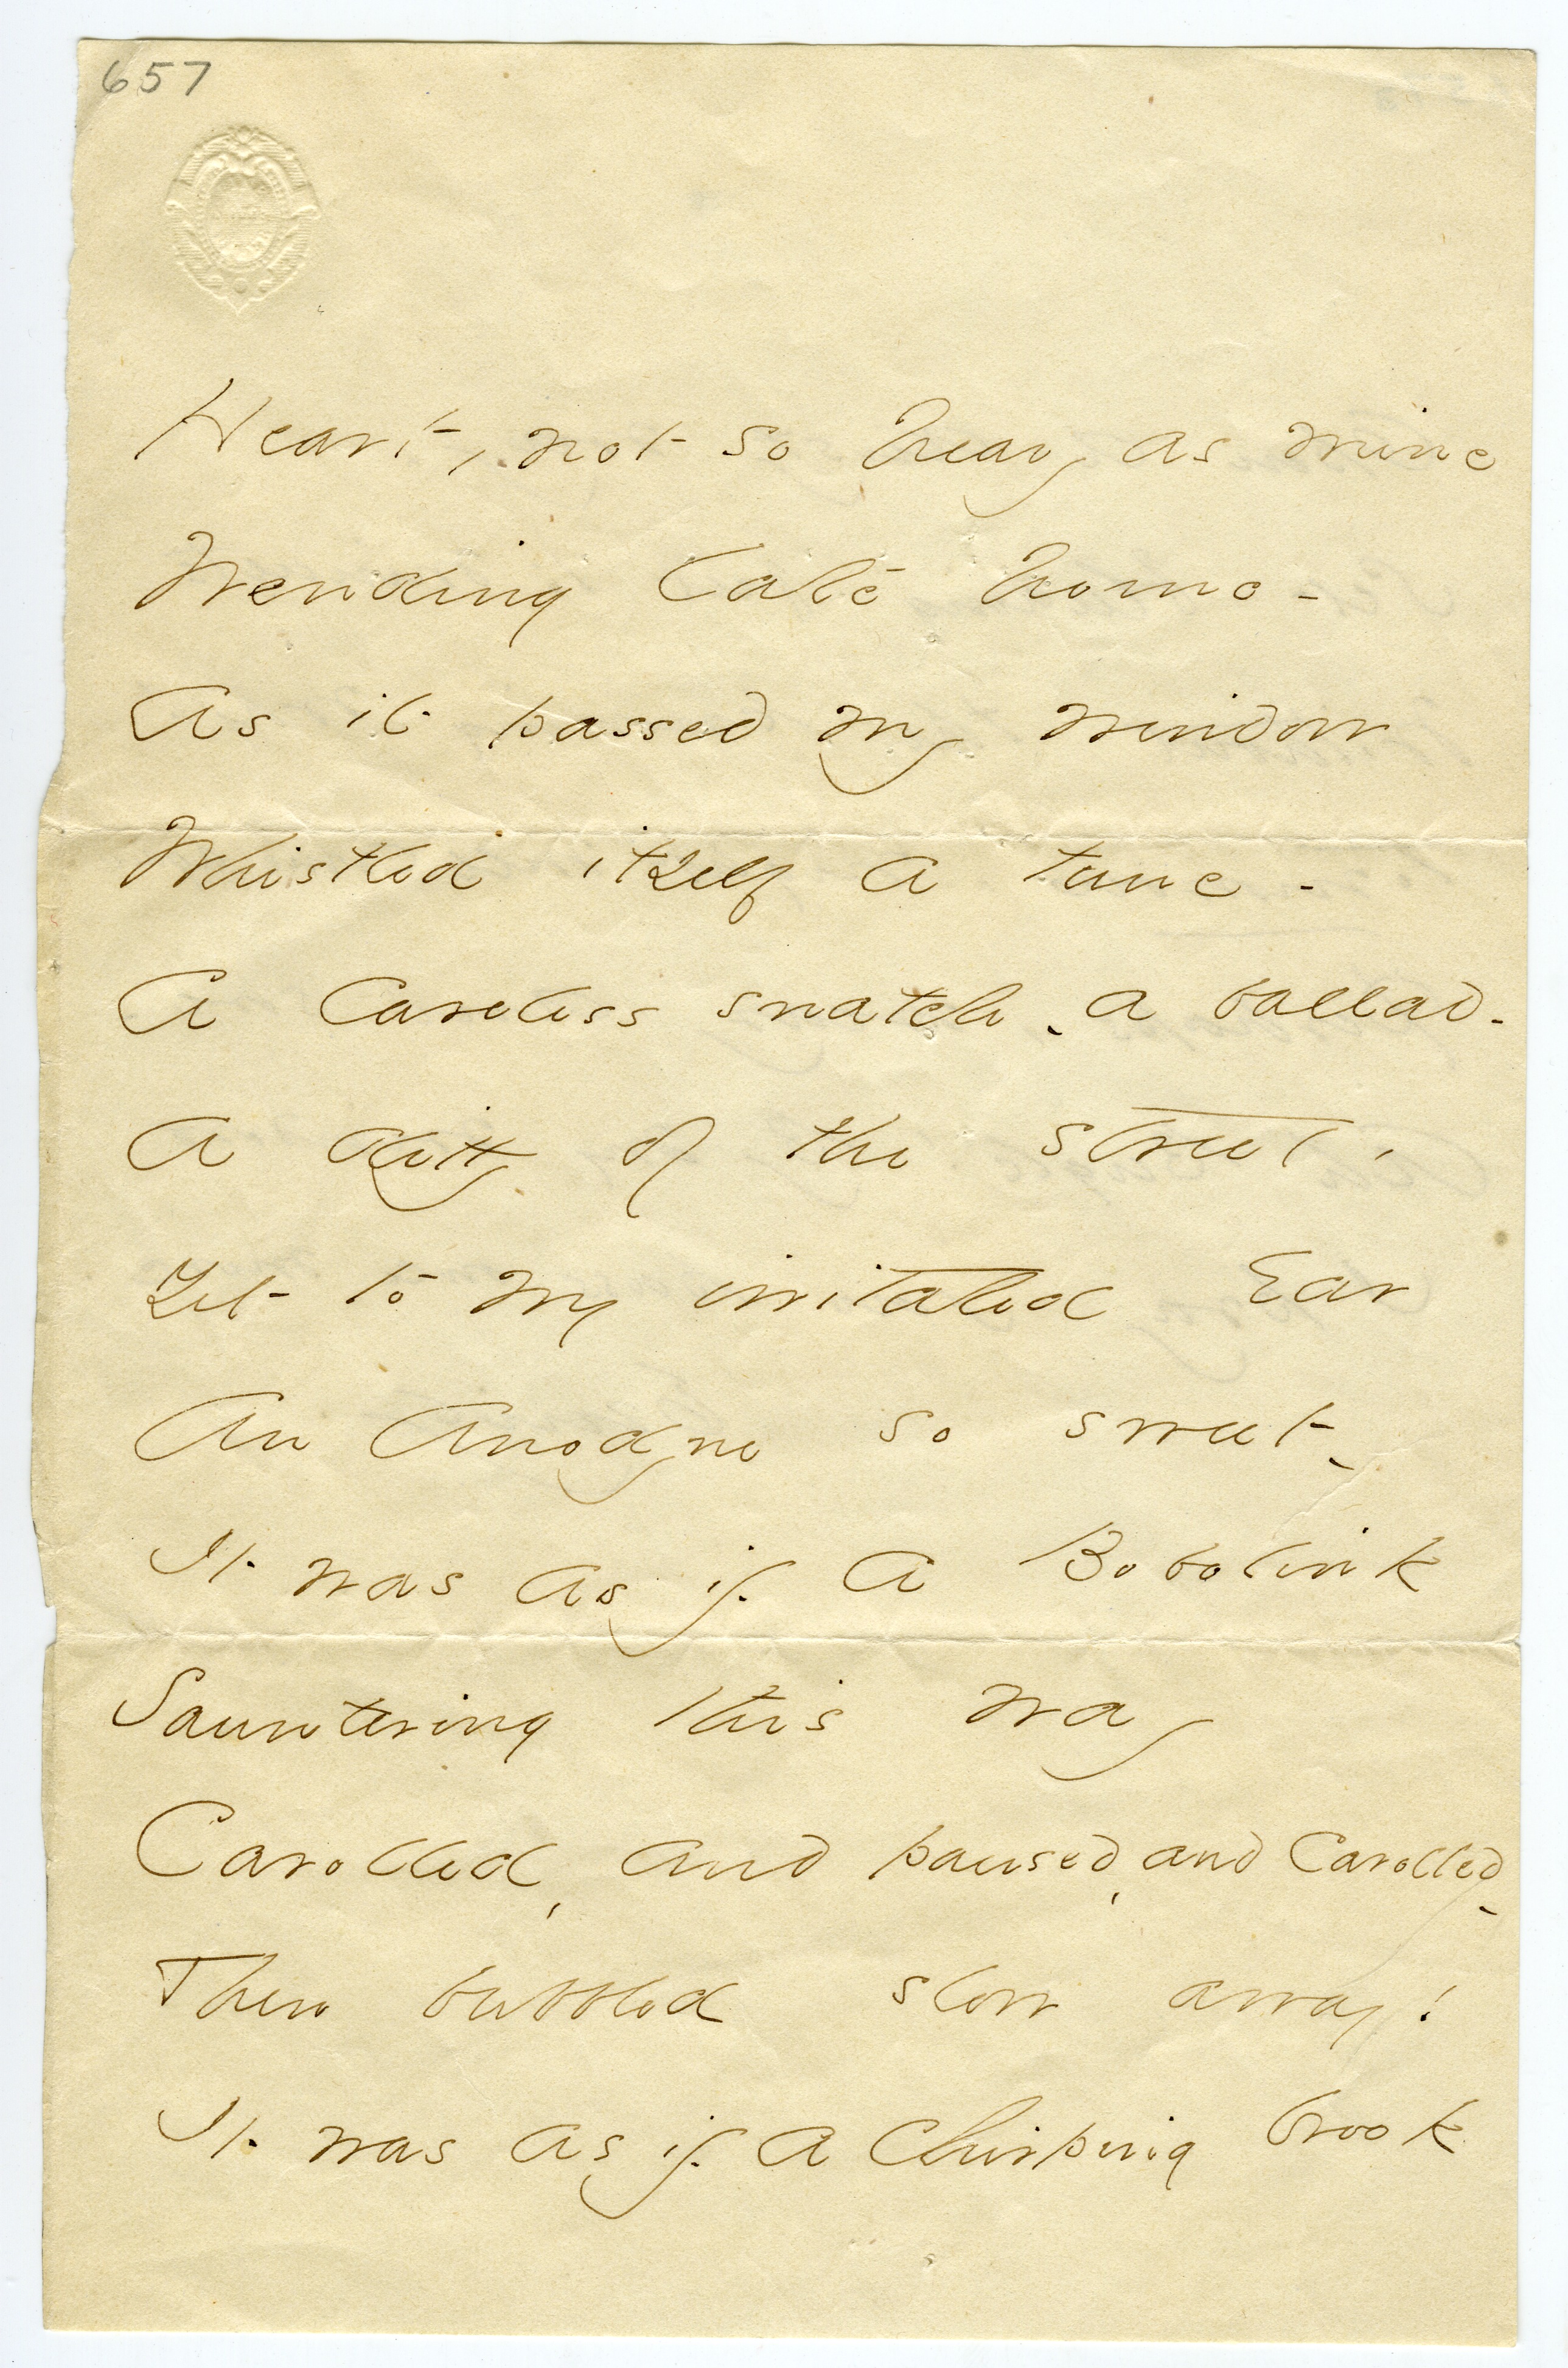 657
Heart, not so heavy as mine
Wending late home -
As it passed my window
Whistled itself a tune -
A Careless snatch - a ballad -
A ditty of the street,
Yet to my irritated Ear
An Anodyne so sweet -
It was as if a Bobolink
Sauntering this way
Carolled, and paused, and Carolled -
Then bubbled slow away!
It was as if a Chirping brook